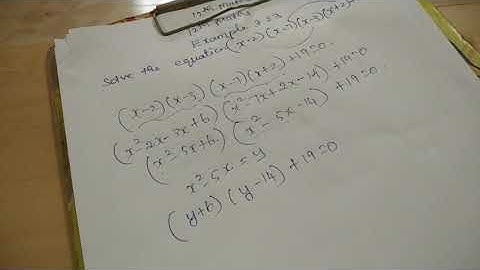 12th Maths
Example 3.23
Solve the equation (x-2)(x-7)(x-3)(x+2)
(x-2)(x-3)(x-7)(x+2)+19=0.
(x²-2x-3x+6)(x²-7x+2x-14)+19=0
(x²-5x+6)(x²-5x-14)+19=0
x²-5x=y
(y+6)(y-14)+19=0